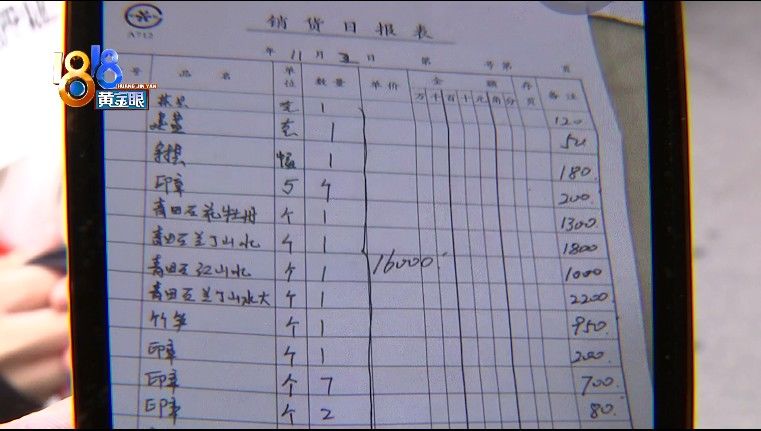 1818
HUANG JIN YAN
黄金眼
A712
销货日报表
年 11 月 日 第 号第 页
号 品名 单位 数量 单价 金额 备注
万 千 百 十 元 角 分
1 120
1 50
1 180.
印章 4 200.
青田石花牡丹 个 1 1300.
青田石兰丁山水 个 1 1800
青田石江山水 个 1 16000. 1000
青田石兰丁山水大 个 1 2200.
竹笋 个 1 950.
印章 个 1 200.
印章 个 7 700.
印章 个 2 80.